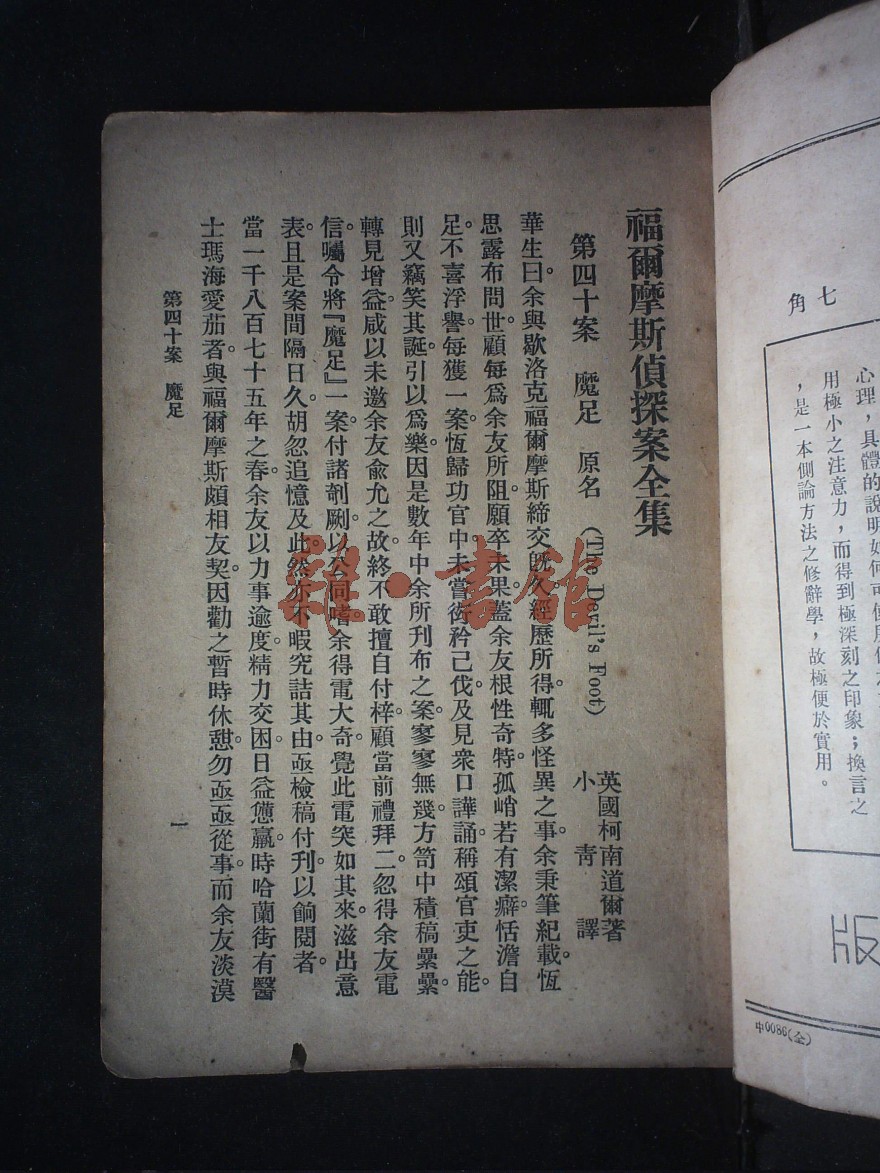 福爾摩斯偵探案全集
第四十案 魔足 原名 (The Devil's Foot)
英國柯南道爾著
小青譯
華生曰。余與歇洛克福爾摩斯締交旣久。經歷所得。輒多怪異之事。余秉筆紀載。恆
思露布問世。顧每爲余友所阻。願卒未果。蓋余友根性奇特。孤峭若有潔癖。恬澹自
足。不喜浮譽。每獲一案。恆歸功官中。未嘗衒矜己伐。及見衆口譁誦。稱頌官吏之能。
則又竊笑其誕。引以爲樂。因是數年中。余所刊布之案。寥寥無幾。方笥中積稿纍纍。
轉見增益。咸以未邀余友兪允之故。終不敢擅自付梓。顧當前禮拜二。忽得余友電
信。囑令將『魔足』一案。付諸剞劂。以公同嗜。余得電大奇。覺此電突如其來。滋出意
表。且是案間隔日久。胡忽追憶及此。然亦不暇究詰其由。亟檢稿付刊。以餉閱者。
當一千八百七十五年之春。余友以力事逾度。精力交困。日益憊羸。時哈蘭街有醫
士瑪海愛茄者。與福爾摩斯頗相友契。因勸之暫時休憩。勿亟亟從事。而余友淡漠
第四十案 魔足
一
七
角
心理，具體的說明如何可使
用極小之注意力，而得到極深刻之印象；換言之
，是一本側論方法之修辭學，故極便於實用。
版
中0086(全)
雜·書館